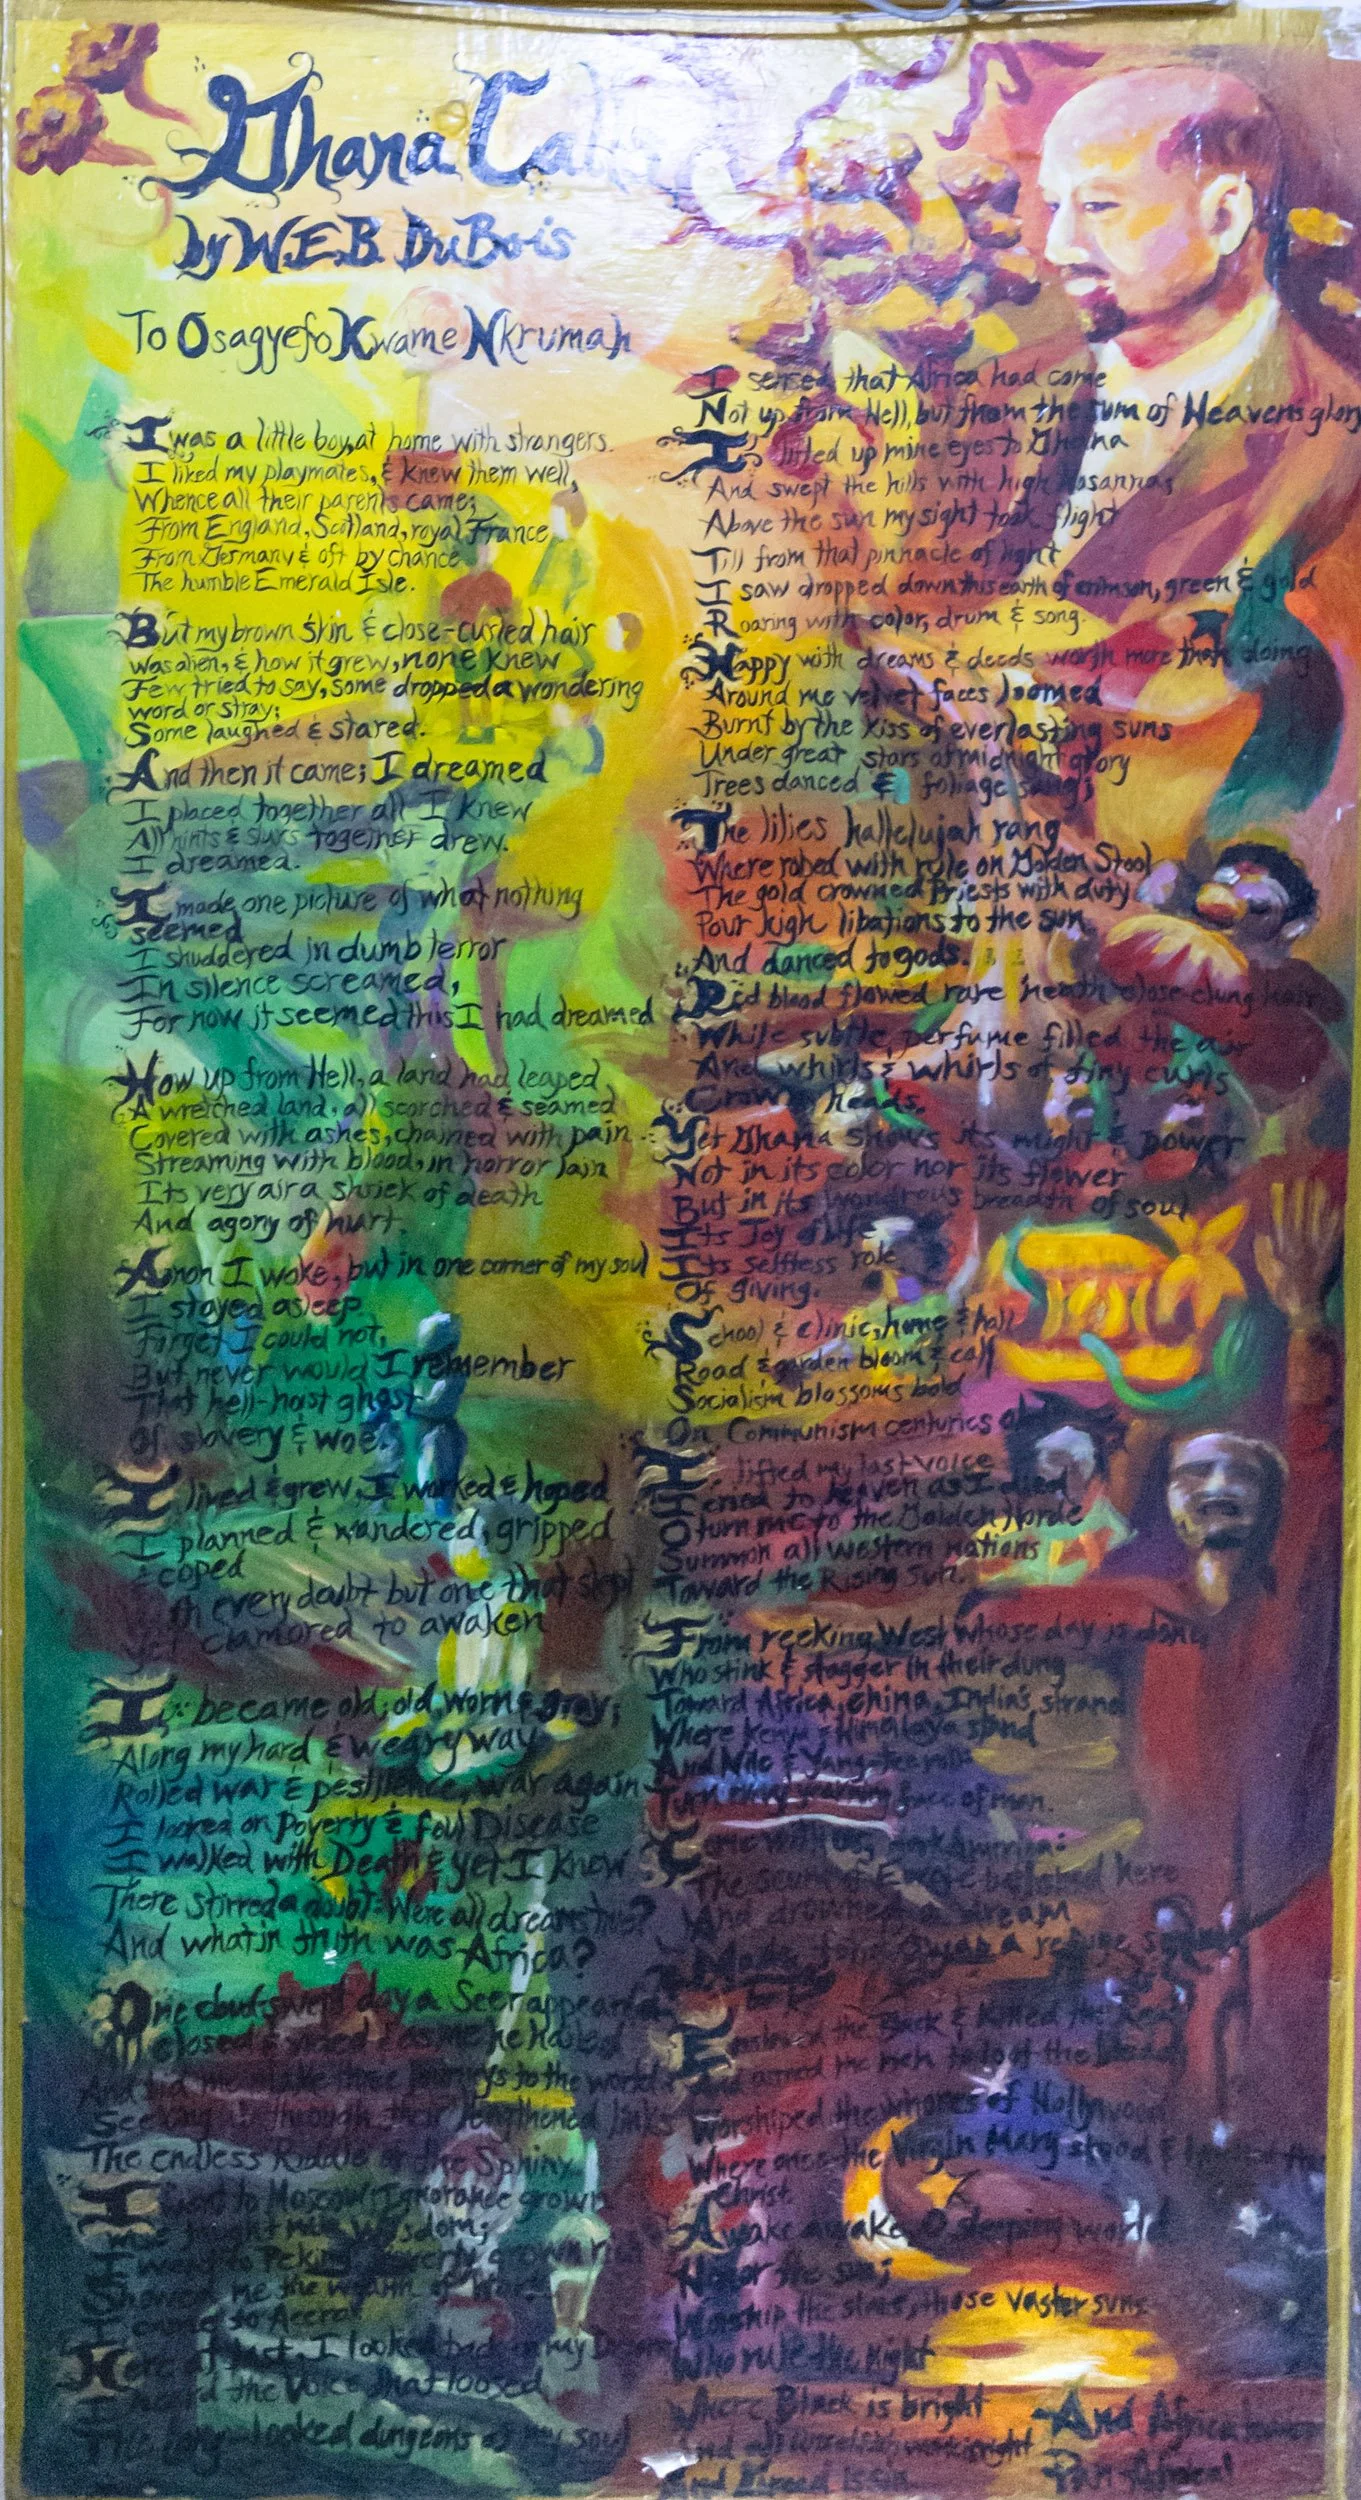 Ghana Calls
by W.E.B. DuBois
To Osagyefo Kwame Nkrumah
I was a little boy, at home with strangers.
I liked my playmates, & knew them well,
Whence all their parents came;
From England, Scotland, royal France
From Germany & oft by chance
The humble Emerald Isle.
But my brown skin & close-curled hair
was alien, & how it grew, none knew
Few tried to say, some dropped a wondering
word or stray;
Some laughed & stared.
And then it came; I dreamed
I placed together all I knew
All hints & slurs together drew.
I dreamed.
I made one picture of what nothing
seemed
I shuddered in dumb terror
In silence screamed,
For now it seemed this I had dreamed
How up from Hell, a land had leaped
A wretched land, all scorched & seamed
Covered with ashes, chained with pain
Streaming with blood, in horror lain
Its very air a shriek of death
And agony of hurt.
Anon I woke, but in one corner of my soul
I stayed asleep
Forget I could not,
But never would I remember
That hell-hoist ghost
Of slavery & woe.
I lived & grew, I worked & hoped
I planned & wandered, gripped
& coped
every doubt but one that slept
Yet clamored to awaken
I became old; old, worn & gray;
Along my hard & weary way
Rolled war & pestilence, war again
I looked on Poverty & foul Disease
I walked with Death & yet I knew
There stirred a doubt: Were all dreams true?
And what in truth was Africa?
One cloud-swept day a Seer appeared
closed & veiled as me he hailed
And bid me make three journeys to the world
Seeking through their lengthened links
The endless Riddle of the Sphinx
I went to Moscow; Ignorance grown
wise taught me Wisdom;
I went to Peking; Poverty grown rich
Showed me the wealth of Work
I came to Accra
Here at last, I looked back on my Dream
I heard the Voice that loosed
The long-locked dungeons of my soul
I sensed that Africa had come
Not up from Hell, but from the sum of Heavens glory
I lifted up mine eyes to Ghana
And swept the hills with high Hosannas
Above the sun my sight took flight
Till from that pinnacle of light
I saw dropped down this earth of crimson, green & gold
Roaring with color, drum & song.
Happy with dreams & deeds worth more than doing
Around me velvet faces loomed
Burnt by the kiss of everlasting suns
Under great stars of midnight glory
Trees danced & foliage sang;
The lilies hallelujah rang
Where robed with rule on Golden Stool
The gold crowned Priests with duty
Pour high libations to the sun
And danced to gods.
Red blood flowed rare neath close-clung hair
While subtle perfume filled the air
And whirls & whirls of tiny curls
Crowned heads.
Yet Ghana shows its might & power
Not in its color nor its flower
But in its wondrous breadth of soul
Its Joy of life
Its selfless role
Of giving.
School & clinic, home & hall
Road & garden bloom & call
Socialism blossoms bold
On Communism centuries old
I lifted my last voice
I cried to heaven as I died
O turn me to the Golden Horde
Summon all western nations
Toward the Rising Sun.
From reeking West whose day is done,
Who stink & stagger in their dung
Toward Africa, China, India's strand
Where Kenya & Himalaya stand
And Nile & Yang-tze roll
Turn every yearning face of man.
Come with us, dark America:
The scum of Europe battened here
And drowned a dream
Made fetid swamp a refuge seem
Enslaved the Black & Killed the Red
And armed the rich to loot the Dead
Worshiped the whores of Hollywood
Where once the Virgin Mary stood & lynched the
Christ
Awake awake O sleeping world
Honor the sun;
Worship the stars, those vaster suns
Who rule the night
Where Black is bright
And all unselfish work is right
And Greed is sin
And Africa leads on
Pan Africa!